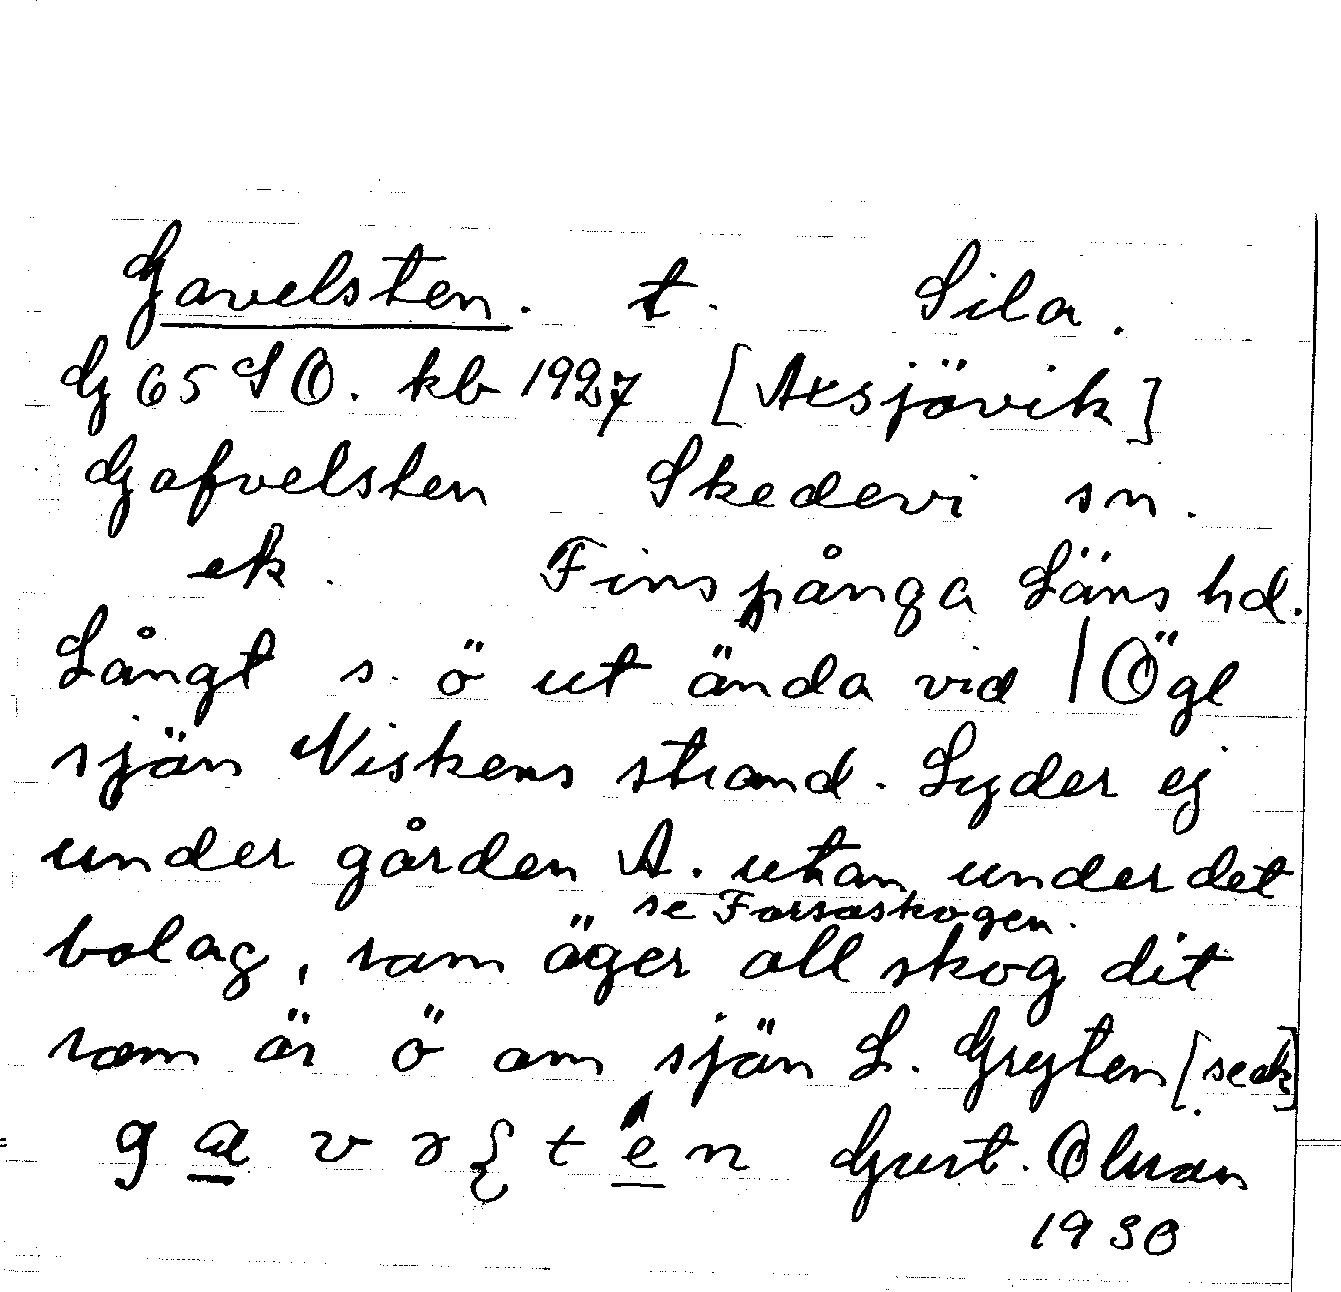 Gavelsten. t. Sila.
G 65 SO. kb 1927 [Axsjövik]
Gafvelsten Skedevi sn.
ek. Finspånga Läns hd.
Långt s. ö ut ända vid | Ögl
sjön Viskens strand. Lyder ej
under gården A. utan under det
se Forsaskogen.
bolag, som äger all skog dit
som är ö om sjön L. Gryten [se ek]
Gust. Olsson
1930